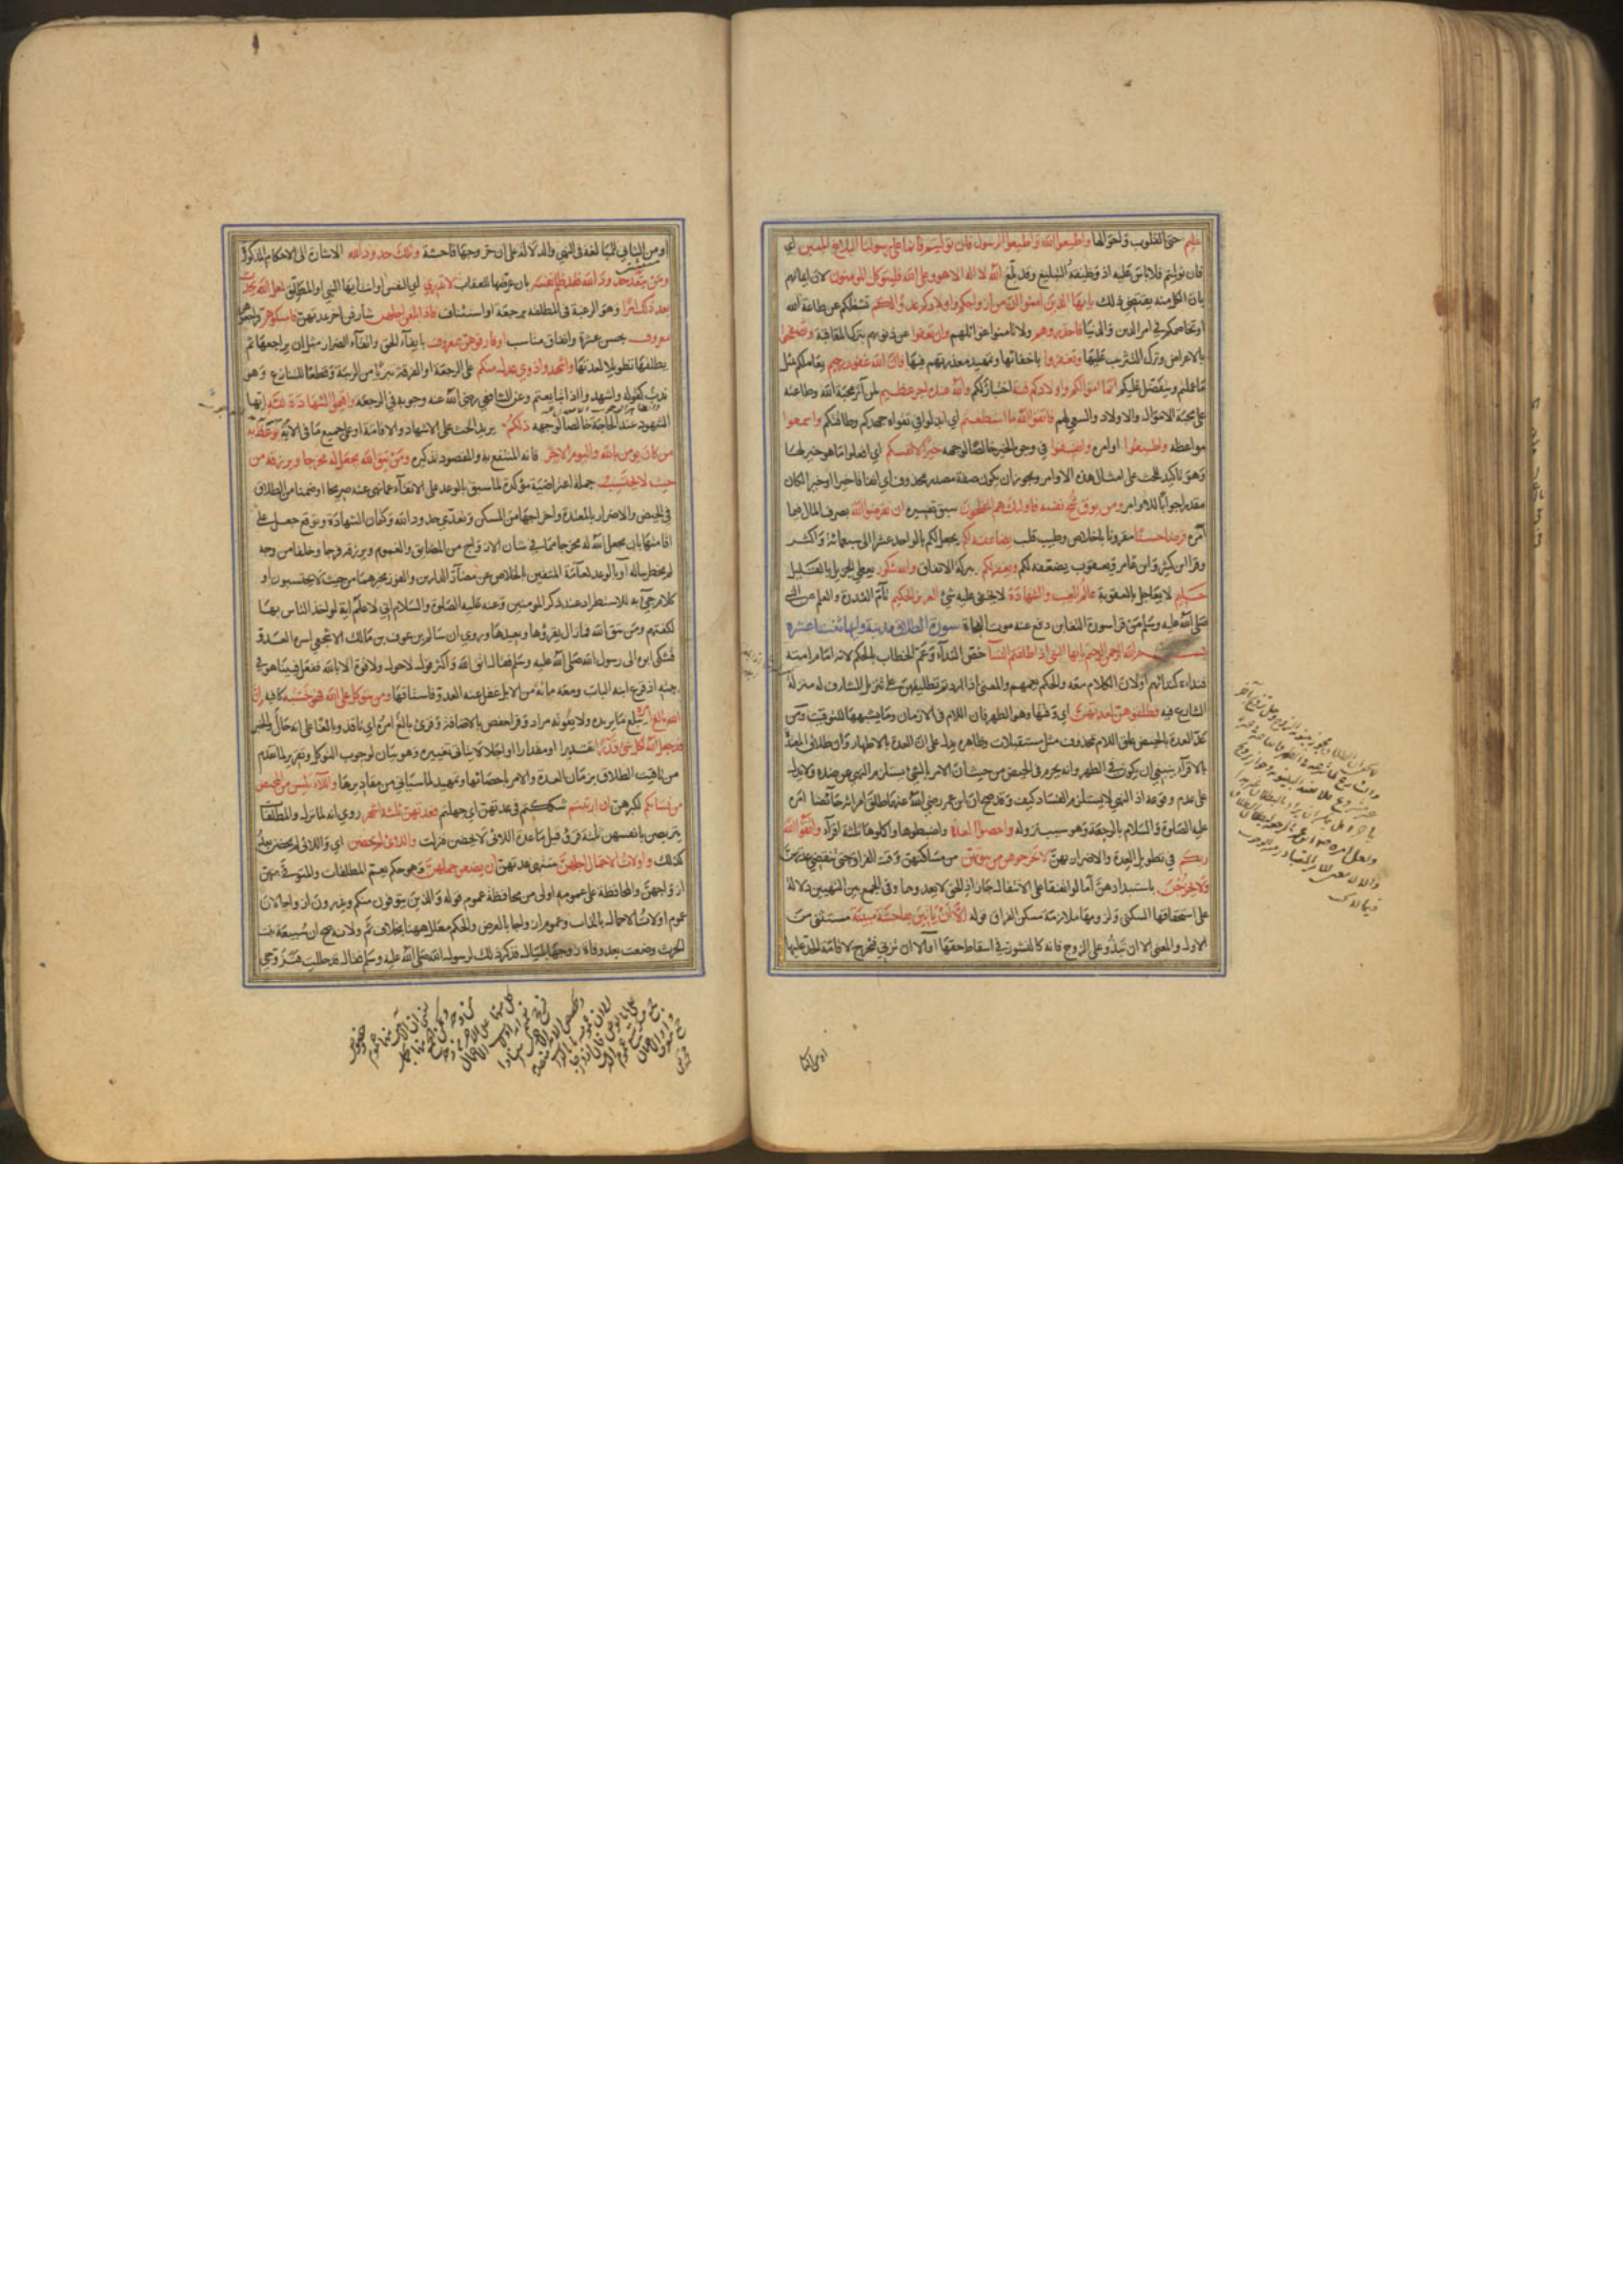 عليم حتى القلوب واحوالها واطيعوا الله واطيعوا الرسول فان توليتم فانما على رسولنا البلاغ المبين اي
فان توليتم فلا باس عليه اذ وظيفته التبليغ وقد بلغ الله لا اله الا هو وعلى الله فليتوكل المومنون لان ايمانهم
بان الكل منه يقتضي ذلك يا ايها الذين امنوا ان من ازواجكم واولادكم عدوا لكم تشغلكم عن طاعة الله
او تخاصمكم في امر الدين والدنيا فاحذروهم ولا تامنوا غوائلهم وان تعفوا عن ذنوبهم بترك المعاقبة وتصفحوا
بالاعراض وترك التثريب عليها وتغفروا باخفائها وتمهيد معذرتهم فيها فان الله غفور رحيم يعاملكم مثل
ما عملتم ويتفضل عليكم انما اموالكم واولادكم فتنة اختبار لكم والله عنده اجر عظيم لمن آثر محبة الله وطاعته
على محبة الاموال والاولاد والسعي لهم فاتقوا الله ما استطعتم اي ابذلوا في تقواه جهدكم وطاقتكم واسمعوا
مواعظه واطيعوا اوامره وانفقوا في وجوه الخير خالصا لوجهه خيرا لانفسكم اي افعلوا ما هو خير لها
وهو تاكيد للحث على امتثال هذه الاوامر ويجوز ان يكون صفة مصدر محذوف اي انفاقا خيرا او خبرا لكان
مقدرا جوابا للاوامر ومن يوق شح نفسه فاولئك هم المفلحون سبق تفسيره ان تقرضوا الله بصرف المال فيما
امره قرضا حسنا مقرونا باخلاص وطيب قلب يضاعفه لكم يجعل لكم بالواحد عشرا الى سبعمائة واكثر
وقرا ابن كثير وابن عامر ويعقوب يضعفه لكم ويغفر لكم ببركة الانفاق والله شكور يعطي الجزيل بالقليل
حليم لا يعاجل بالعقوبة عالم الغيب والشهادة لا يخفى عليه شئ العزيز الحكيم تام القدرة والعلم عن النبي
صلى الله عليه وسلم من قرا سورة التغابن دفع عنه موت الفجاة سورة الطلاق مدنية وايها ثنتا عشرة
بسم الله الرحمن الرحيم يا ايها النبي اذا طلقتم النسا خص الندآء وعم الخطاب بالحكم لانه امام امته
فنداءه كندائهم او لان الكلام معه والحكم يعمهم والمعنى اذا اردتم تطليقهن على تنزيل المشارف له منزلة
الشارع فيه فطلقوهن لعدتهن اي وقتها وهو الطهر فان اللام في الازمان وما يشبهها للتوقيت ومن
عد العدة بالحيض علق اللام بمحذوف مثل مستقبلات وظاهره يدل على ان العدة بالاطهار وان طلاق المعتدة
بالاقرآء ينبغي ان يكون في الطهر وانه يحرم في الحيض من حيث ان الامر بالشئ يستلزم النهي عن ضده ولا يدل
على عدم وقوعه اذ النهي لا يستلزم الفساد كيف وقد صح ان ابن عمر رضي الله عنهما طلق امراته حآئضا امره
عليه الصلوة والسلام بالرجعة وهو سبب نزوله واحصوا العدة واضبطوها واكملوها ثلثة اقرآء واتقوا الله
ربكم في تطويل العدة والاضرار بهن لا تخرجوهن من بيوتهن من مساكنهن وقت الفراق حتى تنقضي عدتهن
ولا يخرجن باستبدادهن اما لو اتفقا على الانتقال جاز اذ الحق لا يعدوهما وفي الجمع بين النهيين دلالة
على استحقاقها السكنى ولزومها ملازمة مسكن الفراق قوله الا ان ياتين بفاحشة مبينة مستثنى من
الاول والمعنى الا ان تبذو على الزوج فانه كالنشوز في اسقاط حقها او الا ان تزني فتخرج لاقامة الحد عليها
او من الثاني للمبالغة في النهي والدلالة على ان خروجها فاحشة وتلك حدود الله الاشارة الى الاحكام المذكورة
ومن يتعد حدود الله فقد ظلم نفسه بان عرضها للعقاب لا تدري اي النفس او انت ايها النبي او المطلق لعل الله يحدث
بعد ذلك امرا وهو الرغبة في المطلقة برجعة او استئناف فاذا بلغن اجلهن شارفن اخر عدتهن فامسكوهن
بمعروف بحسن عشرة وانفاق مناسب او فارقوهن بمعروف بايفآء الحق واتقآء الضرار مثل ان يراجعها ثم
يطلقها تطويلا لعدتها واشهدوا ذوي عدل منكم على الرجعة او الفرقة تبريا من الريبة وقطعا للتنازع وهو
ندب كقوله واشهدوا اذا تبايعتم وعن الشافعي رضي الله عنه وجوبه في الرجعة واقيموا الشهادة لله ايها
الشهود عند الحاجة خالصا لوجهه ذلكم يريد الحث على الاشهاد والاقامة او على جميع ما في الآية يوعظ به
من كان يومن بالله واليوم الاخر فانه المنتفع به والمقصود تذكيره ومن يتق الله يجعل له مخرجا ويرزقه من
حيث لا يحتسب جملة اعتراضية مؤكدة لما سبق بالوعد على الاتقآء عما نهى عنه صريحا او ضمنا من الطلاق
في الحيض والاضرار بالمعتدة واخراجها من المسكن وتعدي حدود الله وكتمان الشهادة وتوقع جعل على
اقامتها بان يجعل الله له مخرجا مما في شان الازواج من المضايق والغموم ويرزقه فرجا وخلفا من وجه
لم يخطر بباله او بالوعد لعامة المتقين بالخلاص عن مضآر الدارين والفوز بخيرهما من حيث لا يحتسبون او
كلام جئ به للاستطراد عند ذكر المومنين وعنه عليه الصلوة والسلام اني لاعلم اية لو اخذ الناس بها
لكفتهم ومن يتق الله فما زال يقرؤها ويعيدها وروي ان سالم بن عوف بن مالك الاشجعي اسره العدو
فشكى ابوه الى رسول الله صلى الله عليه وسلم فقال اتق الله واكثر قول لا حول ولا قوة الا بالله ففعل فبينا هو في
بيته اذ قرع ابنه الباب ومعه مائة من الابل غفل عنه العدو فاستاقها ومن يتوكل على الله فهو حسبه كافيه ان
الله بالغ امره يبلغ ما يريده ولا يفوته مراد وقرا حفص بالاضافة وقرئ بالغ امره اي نافذ وبالغا على انه حال والخبر
قد جعل الله لكل شئ قدرا تقديرا او مقدارا او اجلا لا يتاتى تغييره وهو بيان لوجوب التوكل وتقرير لما تقدم
من تاقيت الطلاق بزمان العدة والامر باحصائها وتمهيد لما سياتي من مقاديرها واللآئي يئسن من المحيض
من نسائكم لكبرهن ان ارتبتم شككتم في عدتهن اي جهلتم فعدتهن ثلثة اشهر روي انه لما نزل والمطلقات
يتربصن بانفسهن ثلثة قروء قيل فما عدة اللائي لا يحضن فنزلت واللائي لم يحضن اي واللائي لم يحضن بعد
كذلك واولات الاحمال اجلهن منتهى عدتهن ان يضعن حملهن وهو حكم يعم المطلقات والمتوفى عنهن
ازواجهن والمحافظة على عمومه اولى من محافظة عموم قوله والذين يتوفون منكم ويذرون ازواجا لان
عموم اولات الاحمال بالذات وعموم ازواجا بالعرض والحكم معلل ههنا بخلاف ثم ولانه صح ان سبيعة بنت
الحرث وضعت بعد وفاة زوجها بليال فذكرت ذلك لرسول الله صلى الله عليه وسلم فقال قد حللت فتزوجي